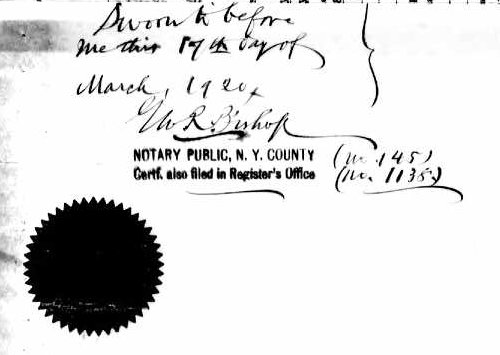 Sworn to before
me this 17th day of
March, 1920,
Geo R Bishop
NOTARY PUBLIC, N. Y. COUNTY (No. 145)
Certf. also filed in Register's Office (No. 1135)